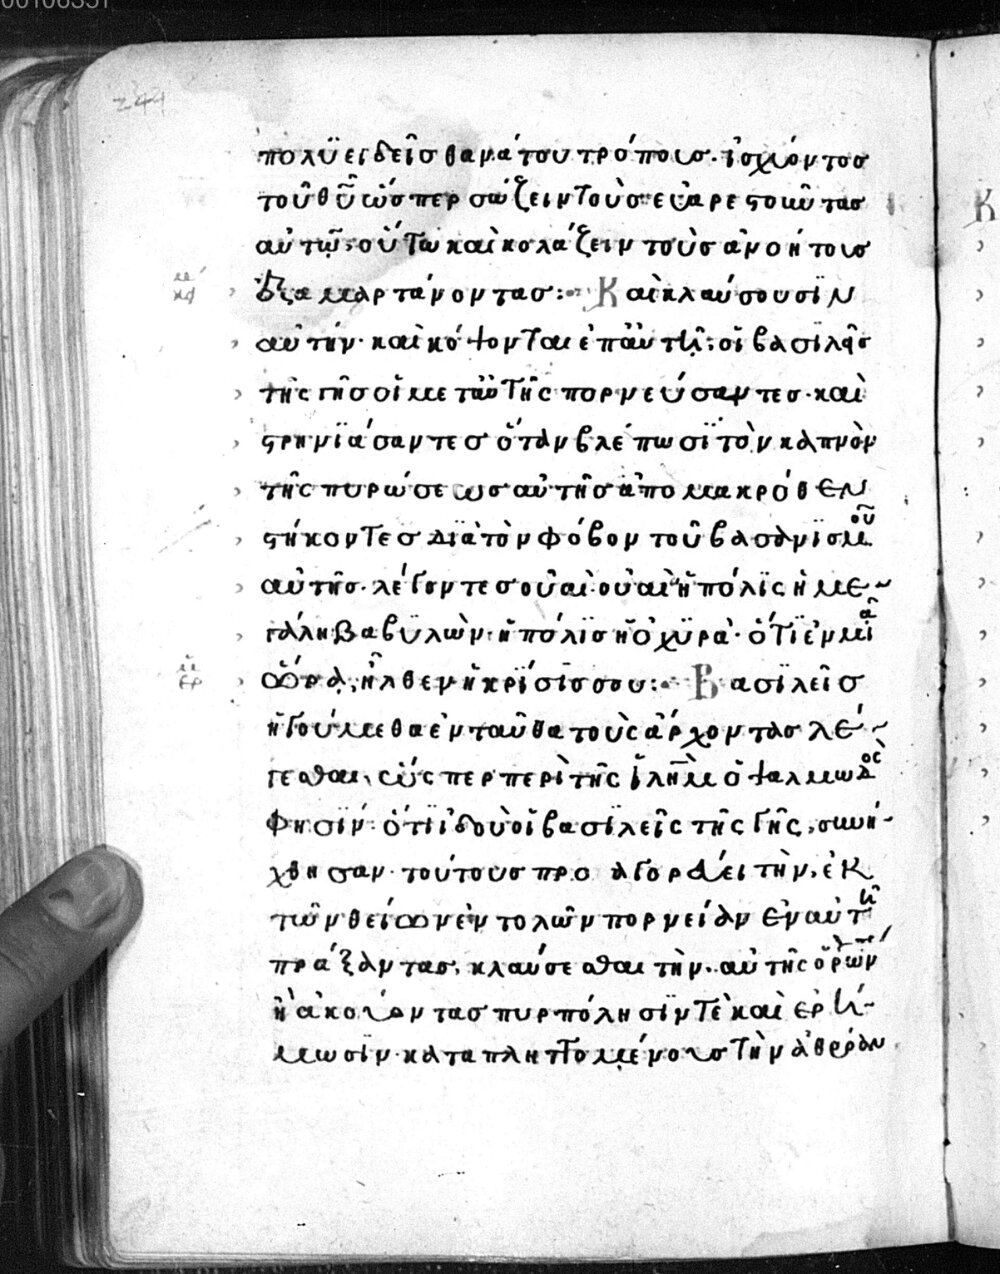 244
πολϋειδεῖσ θανάτου τρόπουσ. ἰσχύοντοσ
τοῦ θῦ ὥσπερ σώζειν τοὺσ εὐαρεστοῦντασ
αὐτῶ, οὕτω καὶ κολάζειν τοὺσ ἀνοήτουσ
ἐξαμαρτάνοντασ: Καὶ κλαύσουσϊν
αὐτήν· καὶ κόψονται ἐπ' αὐτῆ, οἱ βασϊλεῖσ
τῆς γῆσ οἱ μετ' αὐτῆς πορνεύσαντεσ· καὶ
στρηνϊάσαντεσ ὅταν βλέπωσϊ τὸν καπνὸν
τῆς πυρώσεωσ αὐτῆσ ἀπο μακρόθεν
ἑστήκοντεσ διὰ τὸν φόβον τοῦ βασανϊσμοῦ
αὐτῆσ· λέγοντεσ οὐαὶ· οὐαὶ ἡ πόλϊς ἡ με
γάλη Βαβϋλὼν· ἡ πόλϊσ ἡ ὀχϋρὰ· ὅτϊ ἐν μιᾶ
ὥρα, ἦλθεν ἡ κρίσίς σου: Βασϊλεῖσ
ἡγούμεθα ἐνταῦθα τοὺς ἄρχοντασ λέ
γεσθαι, ὥς περ περὶ τῆς ἰλῆμ ὁ ψαλμωδὸς
φησϊν: ὅτϊ ἰδοὺ οἱ βασϊλεῖς τῆς γῆς, συνή
χθησαν· τούτους προαγορεύει τὴν, ἐκ
τῶν θείων ἐντολῶν πορνείαν ἐν αὐτῆ
πράξαντασ, κλαύσεσθαι τὴν αὐτῆς
ἢ ἀκούοντασ πυρπόλησϊν τὲ καὶ ἐρή
μωσϊν· καταπληττομένουσ τὴν ἀθρόαν